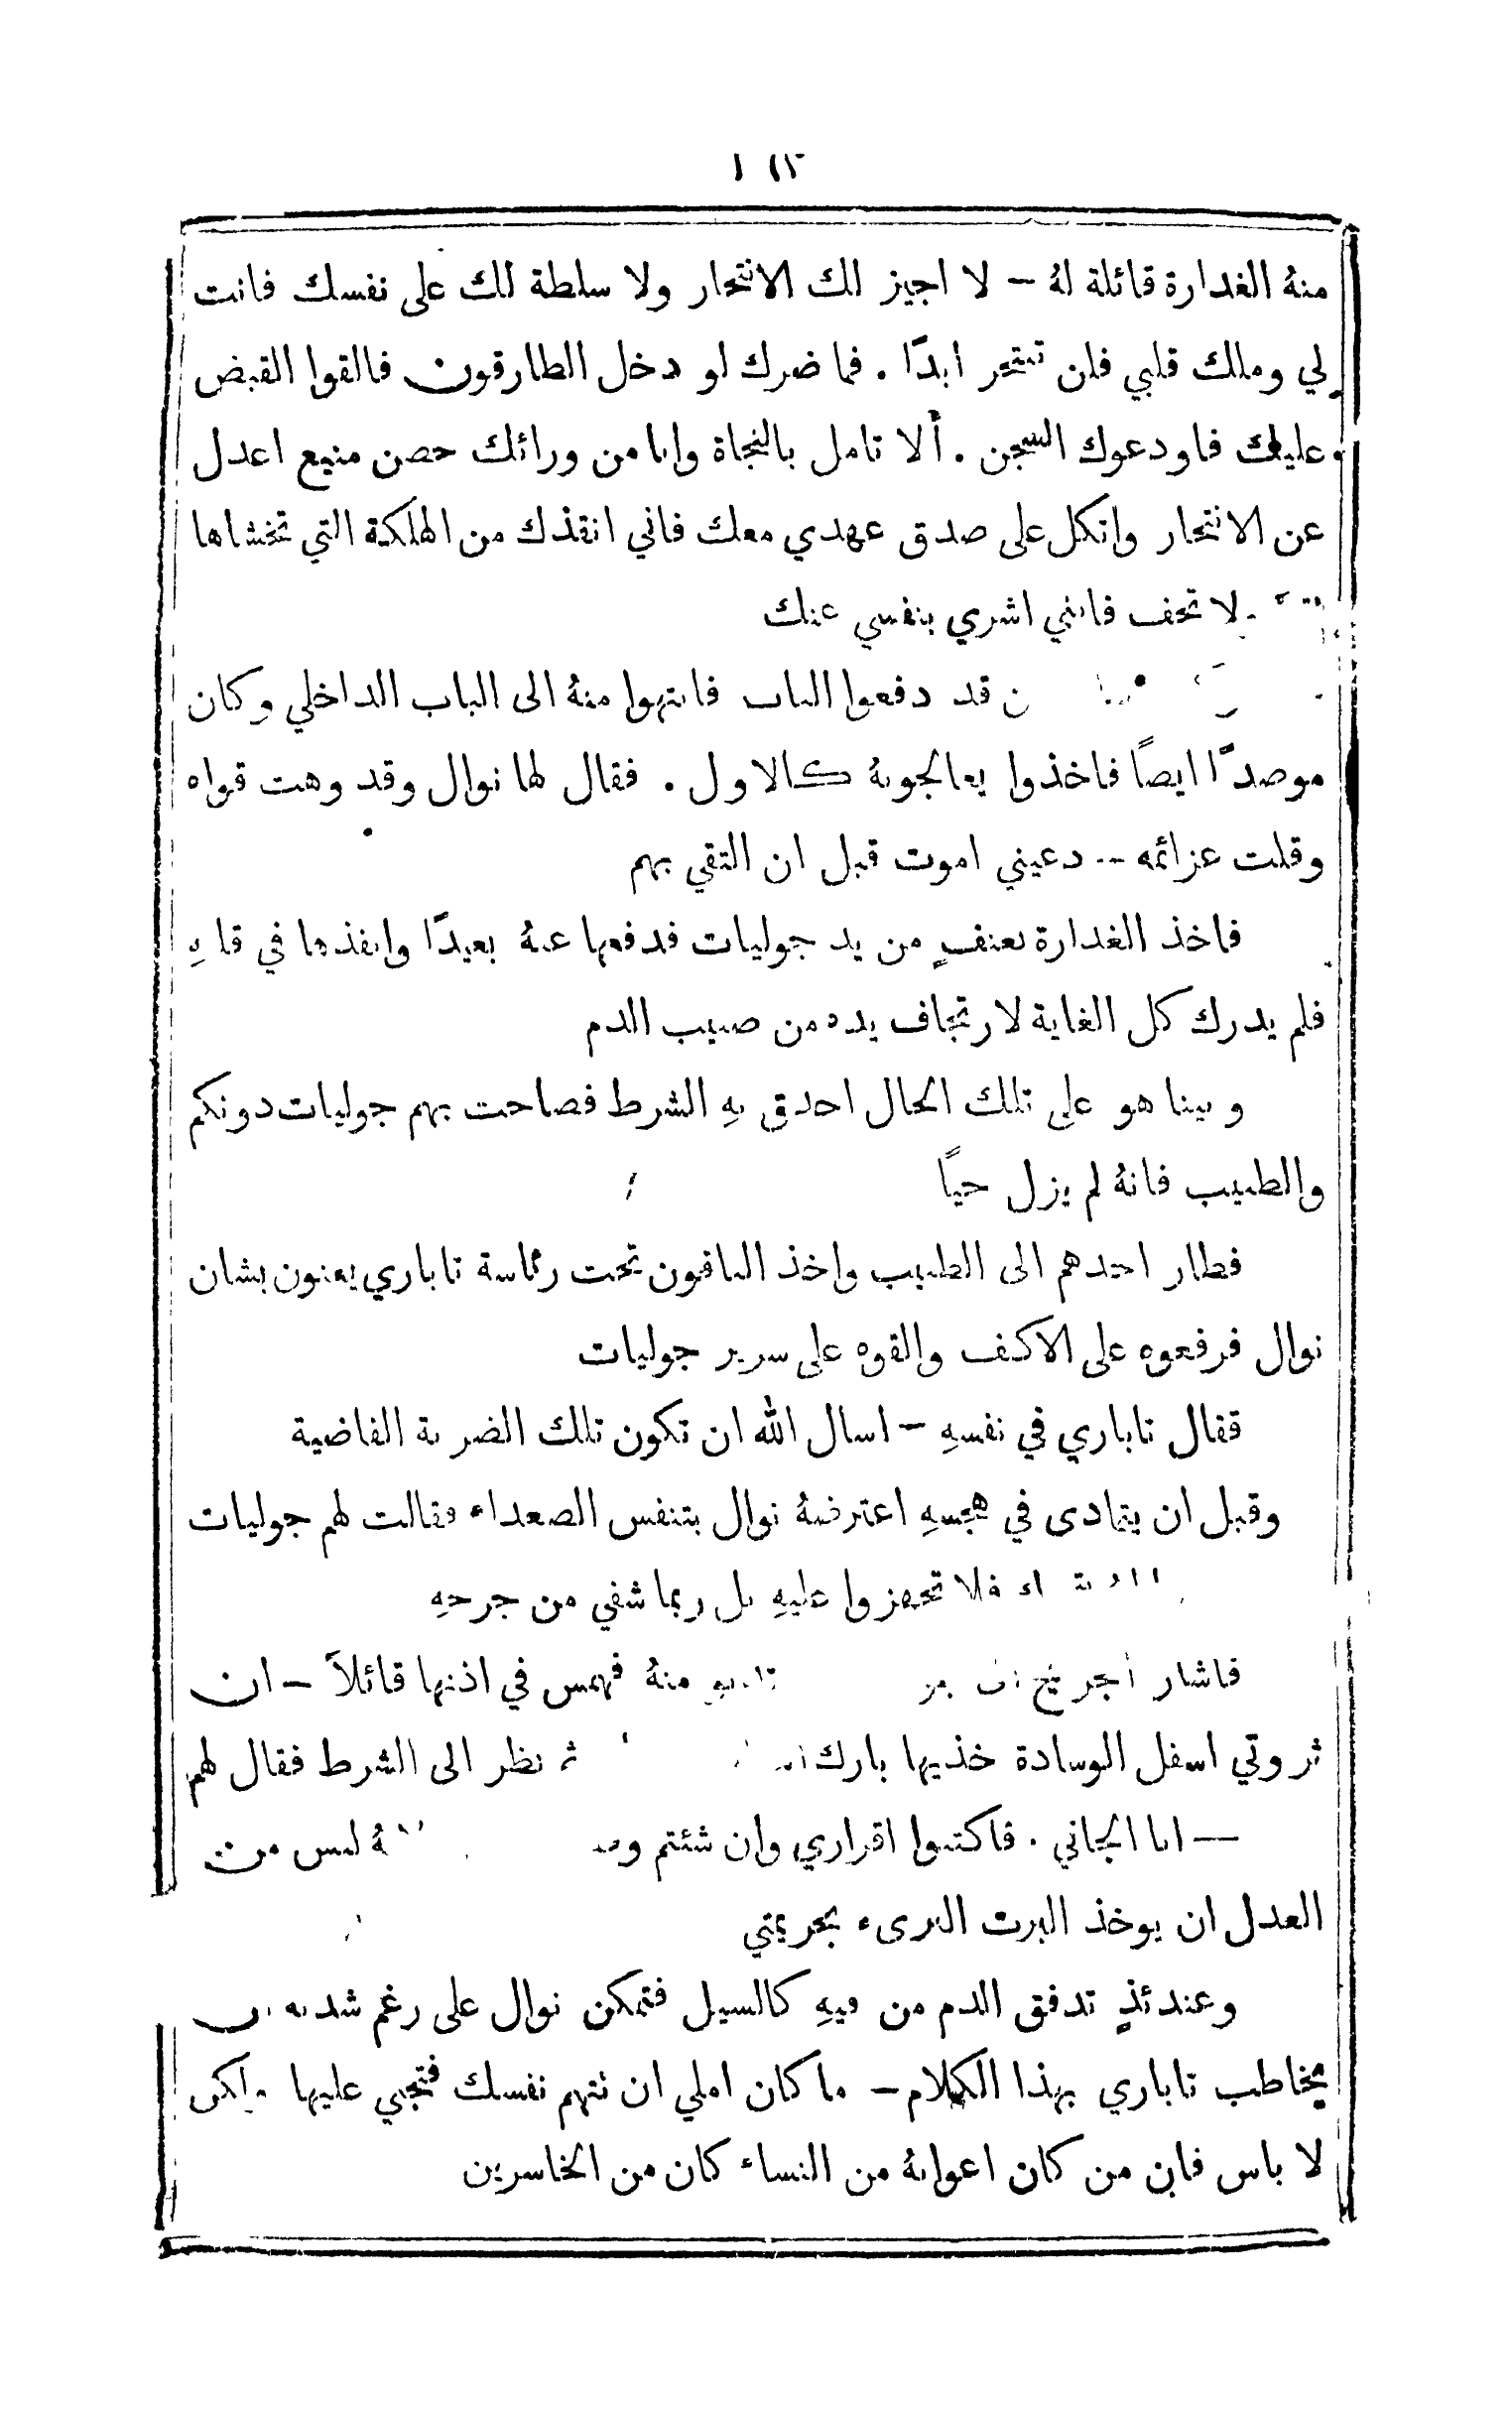 منهُ الغدارة قائلة لهُ – لا اجيز لك الانتحار ولا سلطة لك على نفسك فانت
لي وملك قلبي فلن تنتحر ابدًا . فما ضرك لو دخل الطارقون فالقوا القبض
عليك فاودعوك السجن . ألا تامل بالنجاة وانا من ورائك حصن منيع اعدل
عن الانتحار واتكل على صدق عهدي معك فاني انقذك من الهلكة التي تخشاها
لا تخف فانني اشري بنفسي عنك
قد دفعوا الباب فانتهوا منهُ الى الباب الداخلي وكان
موصدًا ايضًا فاخذوا يعالجونهُ كالاول . فقال لها نوال وقد وهت قواه
وقلت عزائمه -- دعيني اموت قبل ان التقي بهم
فاخذ الغدارة بعنفٍ من يد جوليات فدفعها عنهُ بعيدًا وانفذها في
فلم يدرك كل الغاية لارتجاف يده من صبيب الدم
وبينا هو على تلك الحال احدق بهِ الشرط فصاحت بهم جوليات دونكم
والطبيب فانهُ لم يزل حيًا
فطار احدهم الى الطبيب واخذ الباقون تحت رئاسة تاباري يعنون بشان
نوال فرفعوه على الاكف والقوه على سرير جوليات
فقال تاباري في نفسهِ – اسال الله ان تكون تلك الضربة القاضية
وقبل ان يتمادى في هجسهِ اعترضهُ نوال بتنفس الصعداء فقالت لهم جوليات
فلا تجهزوا عليهِ بل ربما شفي من جرحهِ
فاشار منهُ فهمس في اذنها قائلاً – ان
ثروتي اسفل الوسادة خذيها بارك ثم نظر الى الشرط فقال لهم
— انا الجاني . فاكتبوا اقراري وان شئتم ليس من
العدل ان يوخذ البرت البرىء بجريمتي
وعندئذٍ تدفق الدم من فيهِ كالسيل فتمكن نوال على رغم
يخاطب تاباري بهذا الكلام – ما كان املي ان تتهم نفسك فتجني عليها ولكن
لا باس فان من كان اعوانهُ من النساء كان من الخاسرين